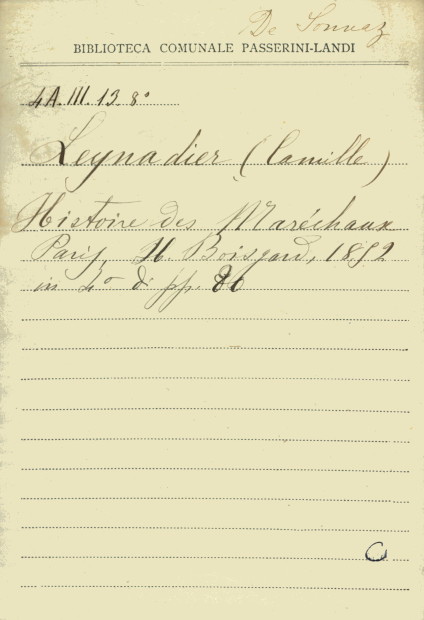 De
BIBLIOTECA COMUNALE PASSERINI-LANDI
4A.III.13 8°
Leynadier (Camille)
Histoire des Maréchaux
Paris, H. Boisgard, 1852
in 4° di pp. 86
C